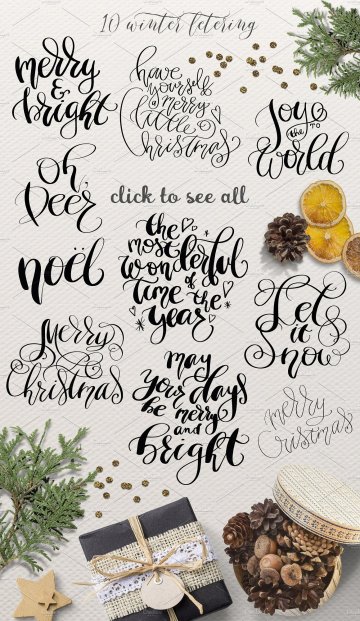 10 winter letering
merry
&
bright
have
yourself
a merry
little
christmas
Joy
to the
world
oh,
Deer
click to see all
noël
the
most
wonderful
time of the
year
Let
it
snow
Merry
Christmas
may
your days
be merry
and
bright
merry
Cristmas